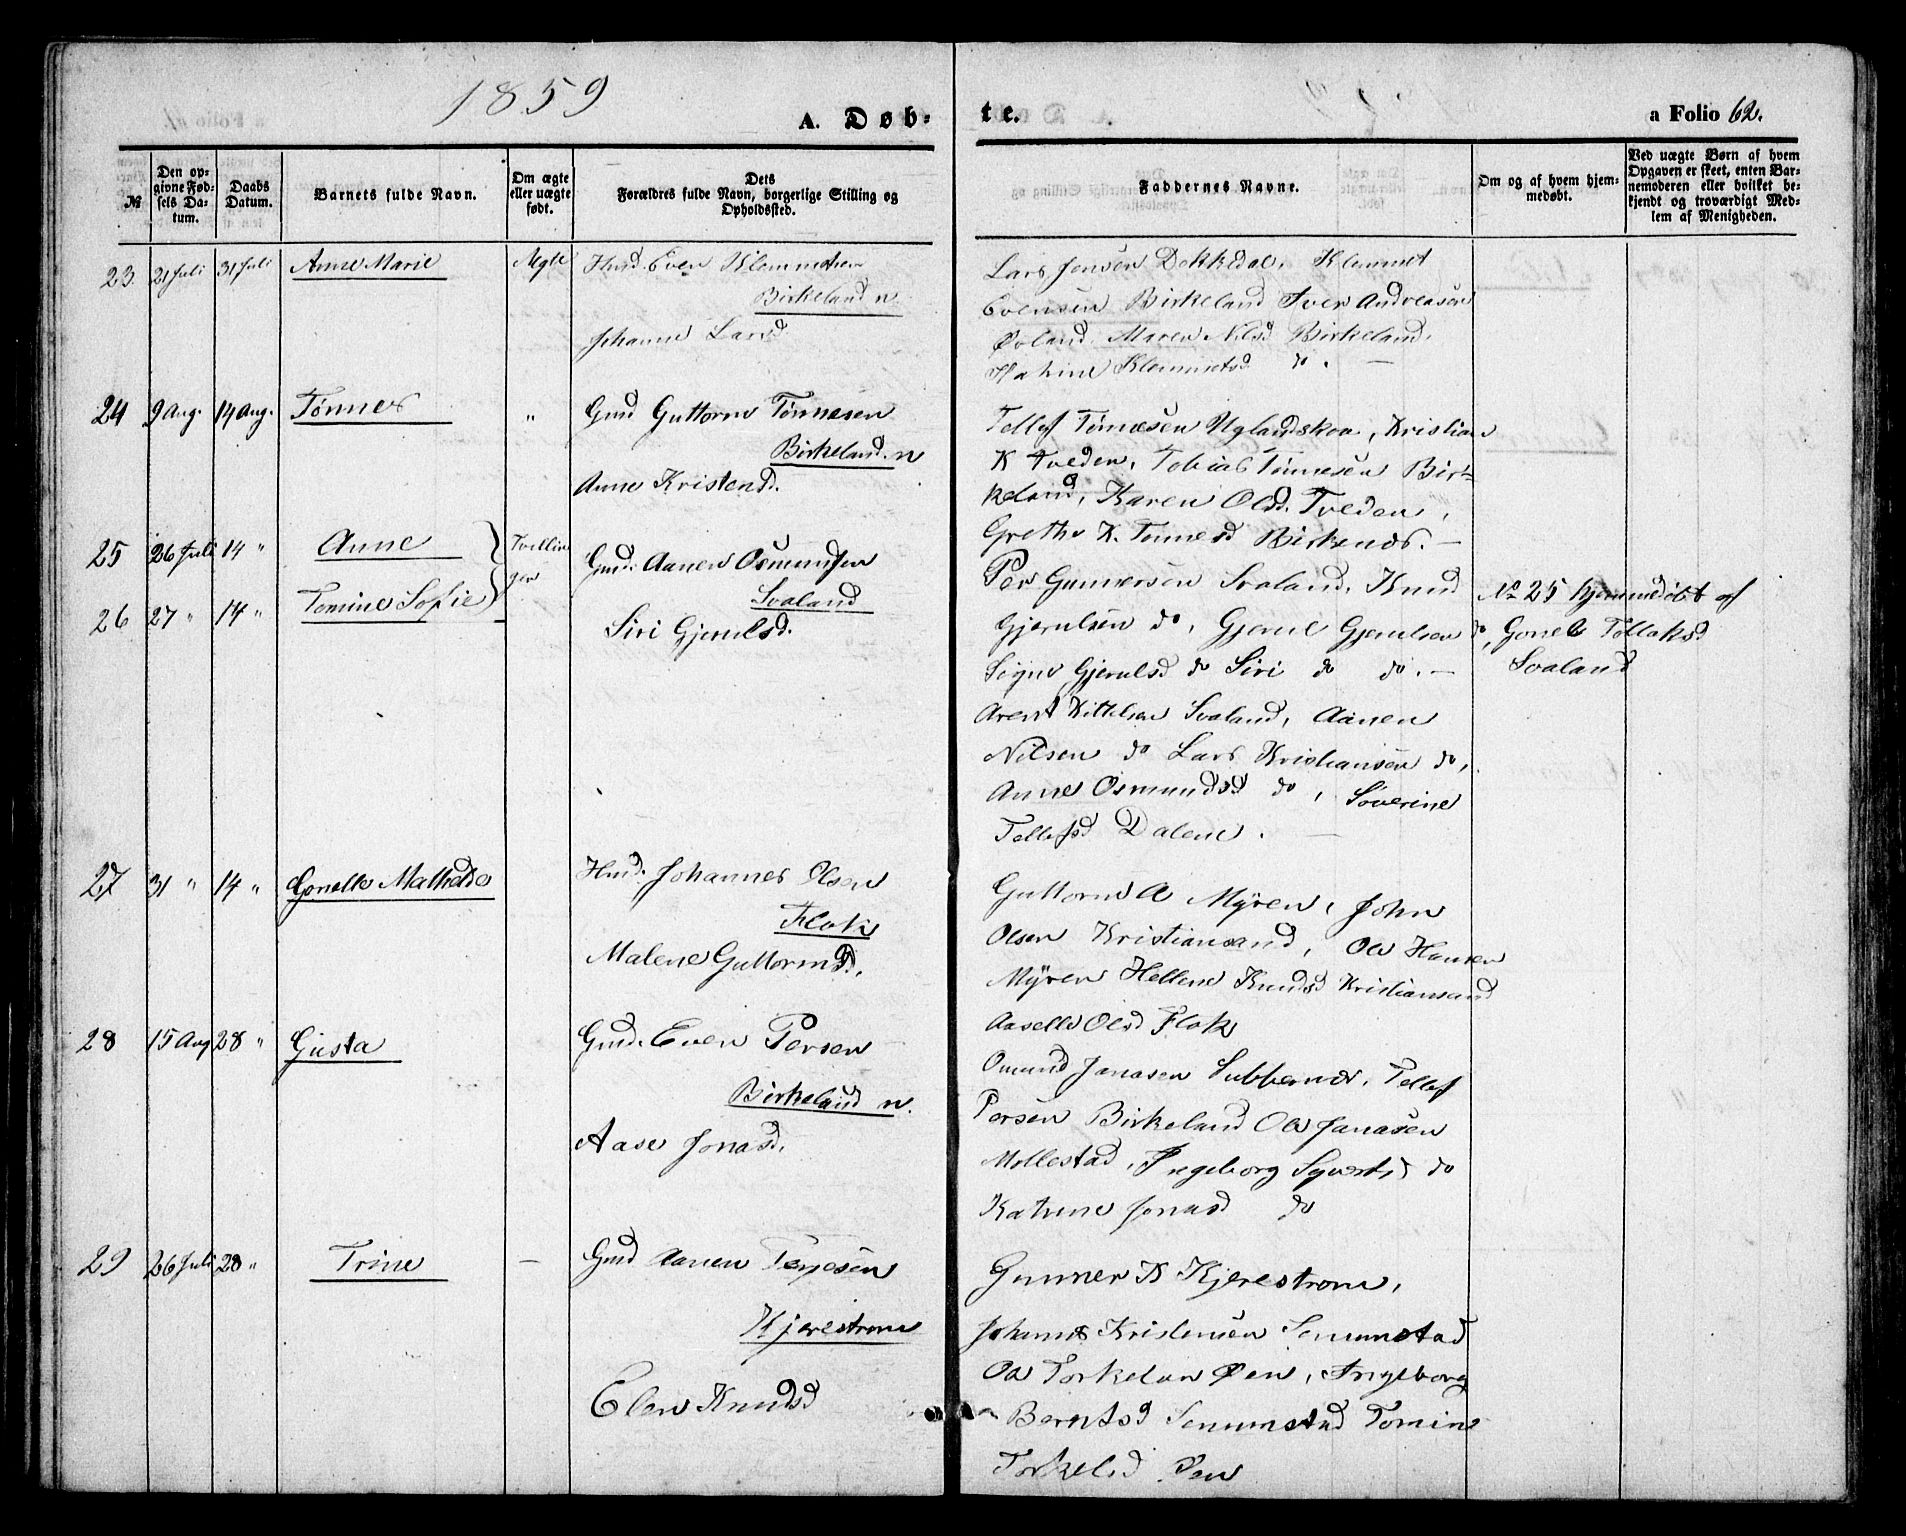 1859
A. Døb-
te.
a Folio 62.
№
Den op-
givne Fød-
sels Da-
tum.
Daabs
Datum.
Barnets fulde Navn.
Om ægte
eller uægte
født.
Dets
Forældres fulde Navn, borgerlige Stilling og
Opholdssted.
Faddernes Navne.
Om og af hvem hjem-
medøbt.
Ved uægte Børn af hvem
Opgaven er skeet, enten Bar-
nemoderen eller hvilket be-
kjendt og troværdigt Med-
lem af Menigheden.
23 21 Juli 31 Juli Anne Marie Ægte Husd Even Klemmetsen
Birkeland n
Johanne Larsd
Lars Jensen Dokkedal, Klemmet
Evensen Birkeland Iver Andreasen
Øvland, Maren Nilsd Birkeland,
Klemmetsd do. —
24 9 Aug. 14 Aug. Tønnes " Gmd Guttorm Tønnesen
Birkeland n
Anne Kristensd.
Tellef Tønnesen Uglandskon, Kristian
K Tveden, Tobias Tønnesen Bir-
keland, Karen Olsd. Tveden,
Grethe K. Tønnesd Birkenes. —
25 26 Juli 14 " Anne Tvillin
ger
26 27 " 14 " Tomine Sofie
Gmd. Aanen Osmundsen
Svaland
Siri Gjerulsd.
Per Gunnersen Svaland, Knud
Gjerulsen do, Gjerul Gjerulsen do,
Signe Gjerulsd do Siri do do. —
Arent Kittelsen Svaland, Aanen
Nilsen do Lars Kristiansen do,
Anne Osmundsd do, Severine
Tellefsd Dalene. —
№ 25 hjemmedøbt af
Gonel Tollaksd
Svaland
27 31 " 14 " Gonelle Mathilde
Husd. Johannes Olsen
Flak
Malene Guttormsd.
Guttorm A Myren, John
Olsen Kristiansand, Ole Hansen
Myren Hellene Knudsd Kristiansand
Aaselle Olsd Flak
28 15 Aug 28 " Gusta
Gmd. Even Persen
Birkeland n.
Aase Jonasd.
Omund Jonasen Tellef
Persen Birkeland Ole Jonasen
Mollestad, Ingeborg Syvertsd do
Katrine Jonasd do
29 26 Juli 28 " Trine — Gmd Aanen Terjesen
Kjerestrom
Elen Knudsd
Gunner K Kjerestrom,
Johannes Kristensen Senumstad
Ole Torkelsen Øen, Ingeborg
Berntsd Senumstad Tomine
Torkelsd Øen